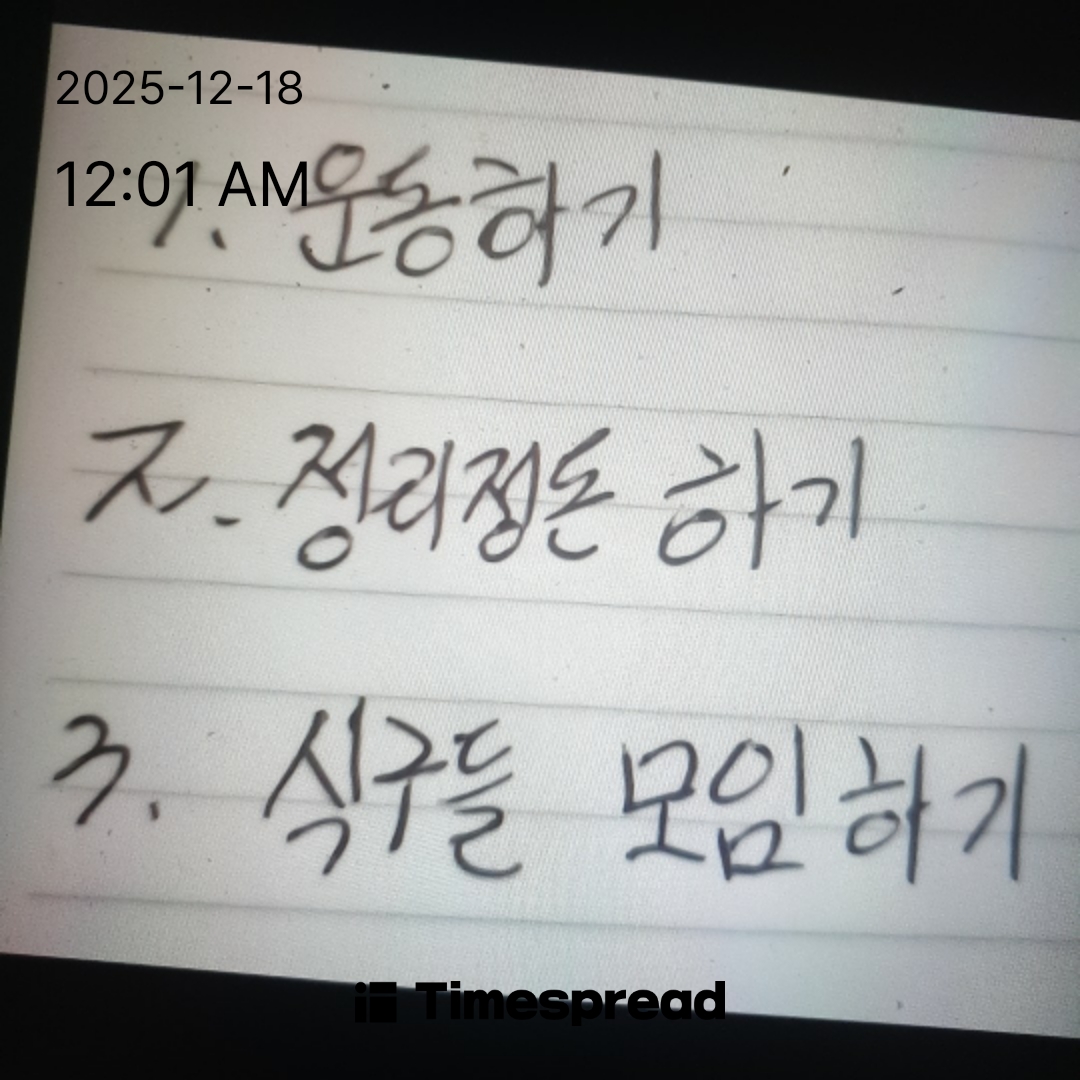 2025-12-18
12:01 AM
1. 운동하기
2. 정리정돈 하기
3. 식구들 모임하기
Timespread